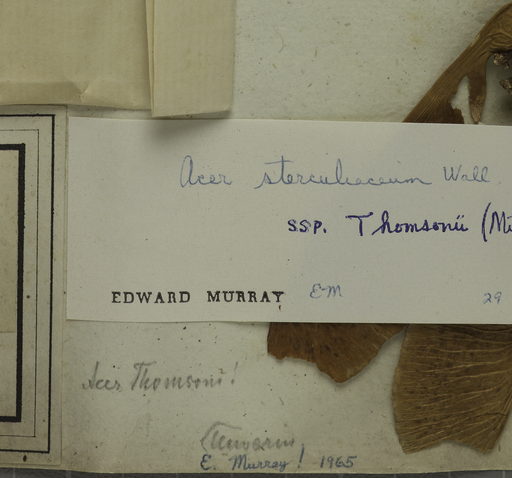 Acer sterculiaceum Wall.
SSP. Thomsonii (Mi
EDWARD MURRAY EM 29
Acer Thomsoni!
E. Murray! 1965